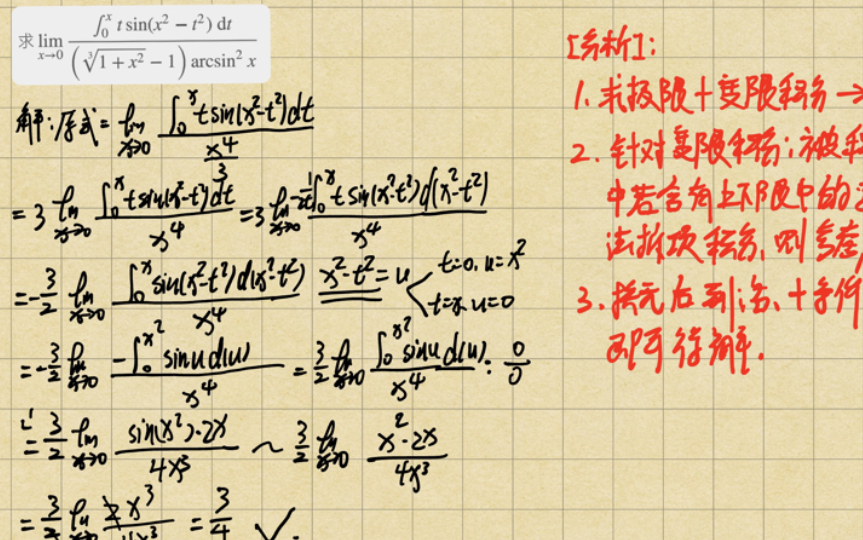 求 lim_{x→0} \frac{∫_0^x t sin(x² − t²) dt}{(∛(1+x²) − 1) arcsin² x}
解:原式= lim_{x→0} \frac{∫_0^x t sin(x²-t²)dt}{\frac{x⁴}{3}}
= 3 lim_{x→0} \frac{∫_0^x t sin(x²-t²)dt}{x⁴} = 3 lim_{x→0} \frac{-\frac{1}{2t}∫_0^x t sin(x²-t²)d(x²-t²)}{x⁴}
= -\frac{3}{2} lim_{x→0} \frac{∫_0^x sin(x²-t²)d(x²-t²)}{x⁴} x²-t²=u t=0. u=x²
t=x. u=0
= -\frac{3}{2} lim_{x→0} \frac{-∫_0^{x²} sinu d(u)}{x⁴} = \frac{3}{2} lim_{x→0} \frac{∫_0^{x²} sinu d(u)}{x⁴} : \frac{0}{0}
L' = \frac{3}{2} lim_{x→0} \frac{sin(x²)·2x}{4x³} ~ \frac{3}{2} lim_{x→0} \frac{x²·2x}{4x³}
= \frac{3}{2} lim_{x→0} \frac{2x³}{4x³} = \frac{3}{4} ✓.
[分析]:
1. 求极限+变限积分→
2. 针对变限积分:被积
中若含有上下限中的
法拆项积分,则考虑
3. 换元后到洛、+等价
即可得解.